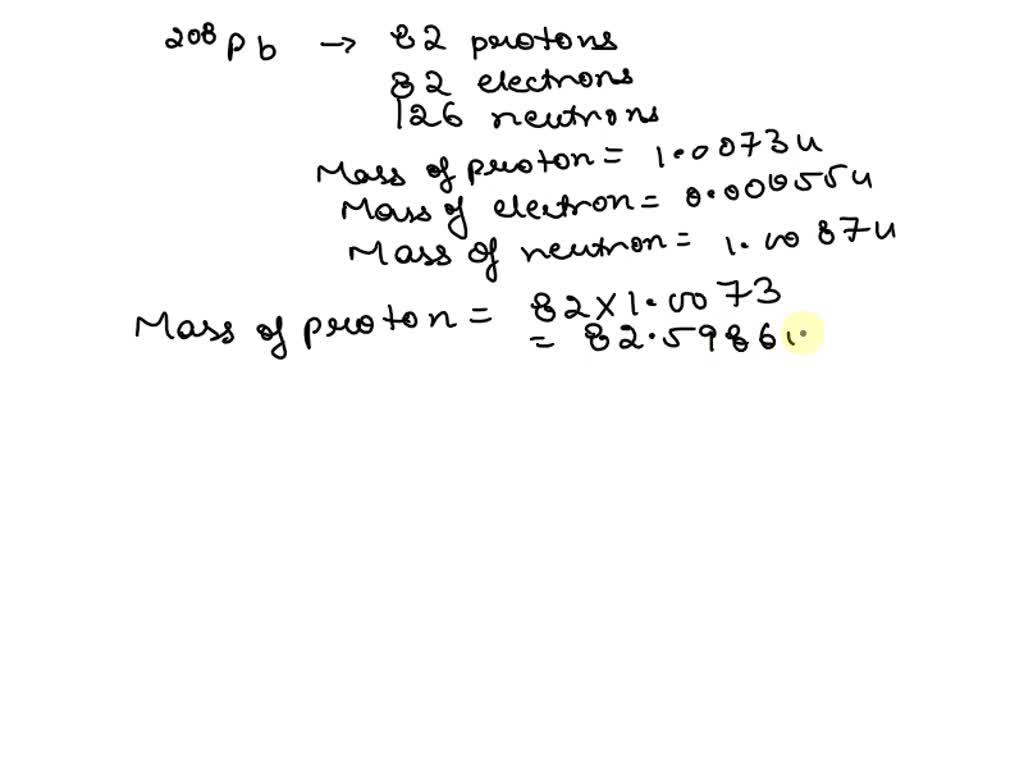 208Pb → 82 protons
82 electrons
126 neutrons
Mass of proton = 1.0073u
Mass of electron = 0.00055u
Mass of neutron = 1.0087u
Mass of proton = 82×1.0073
= 82.5986